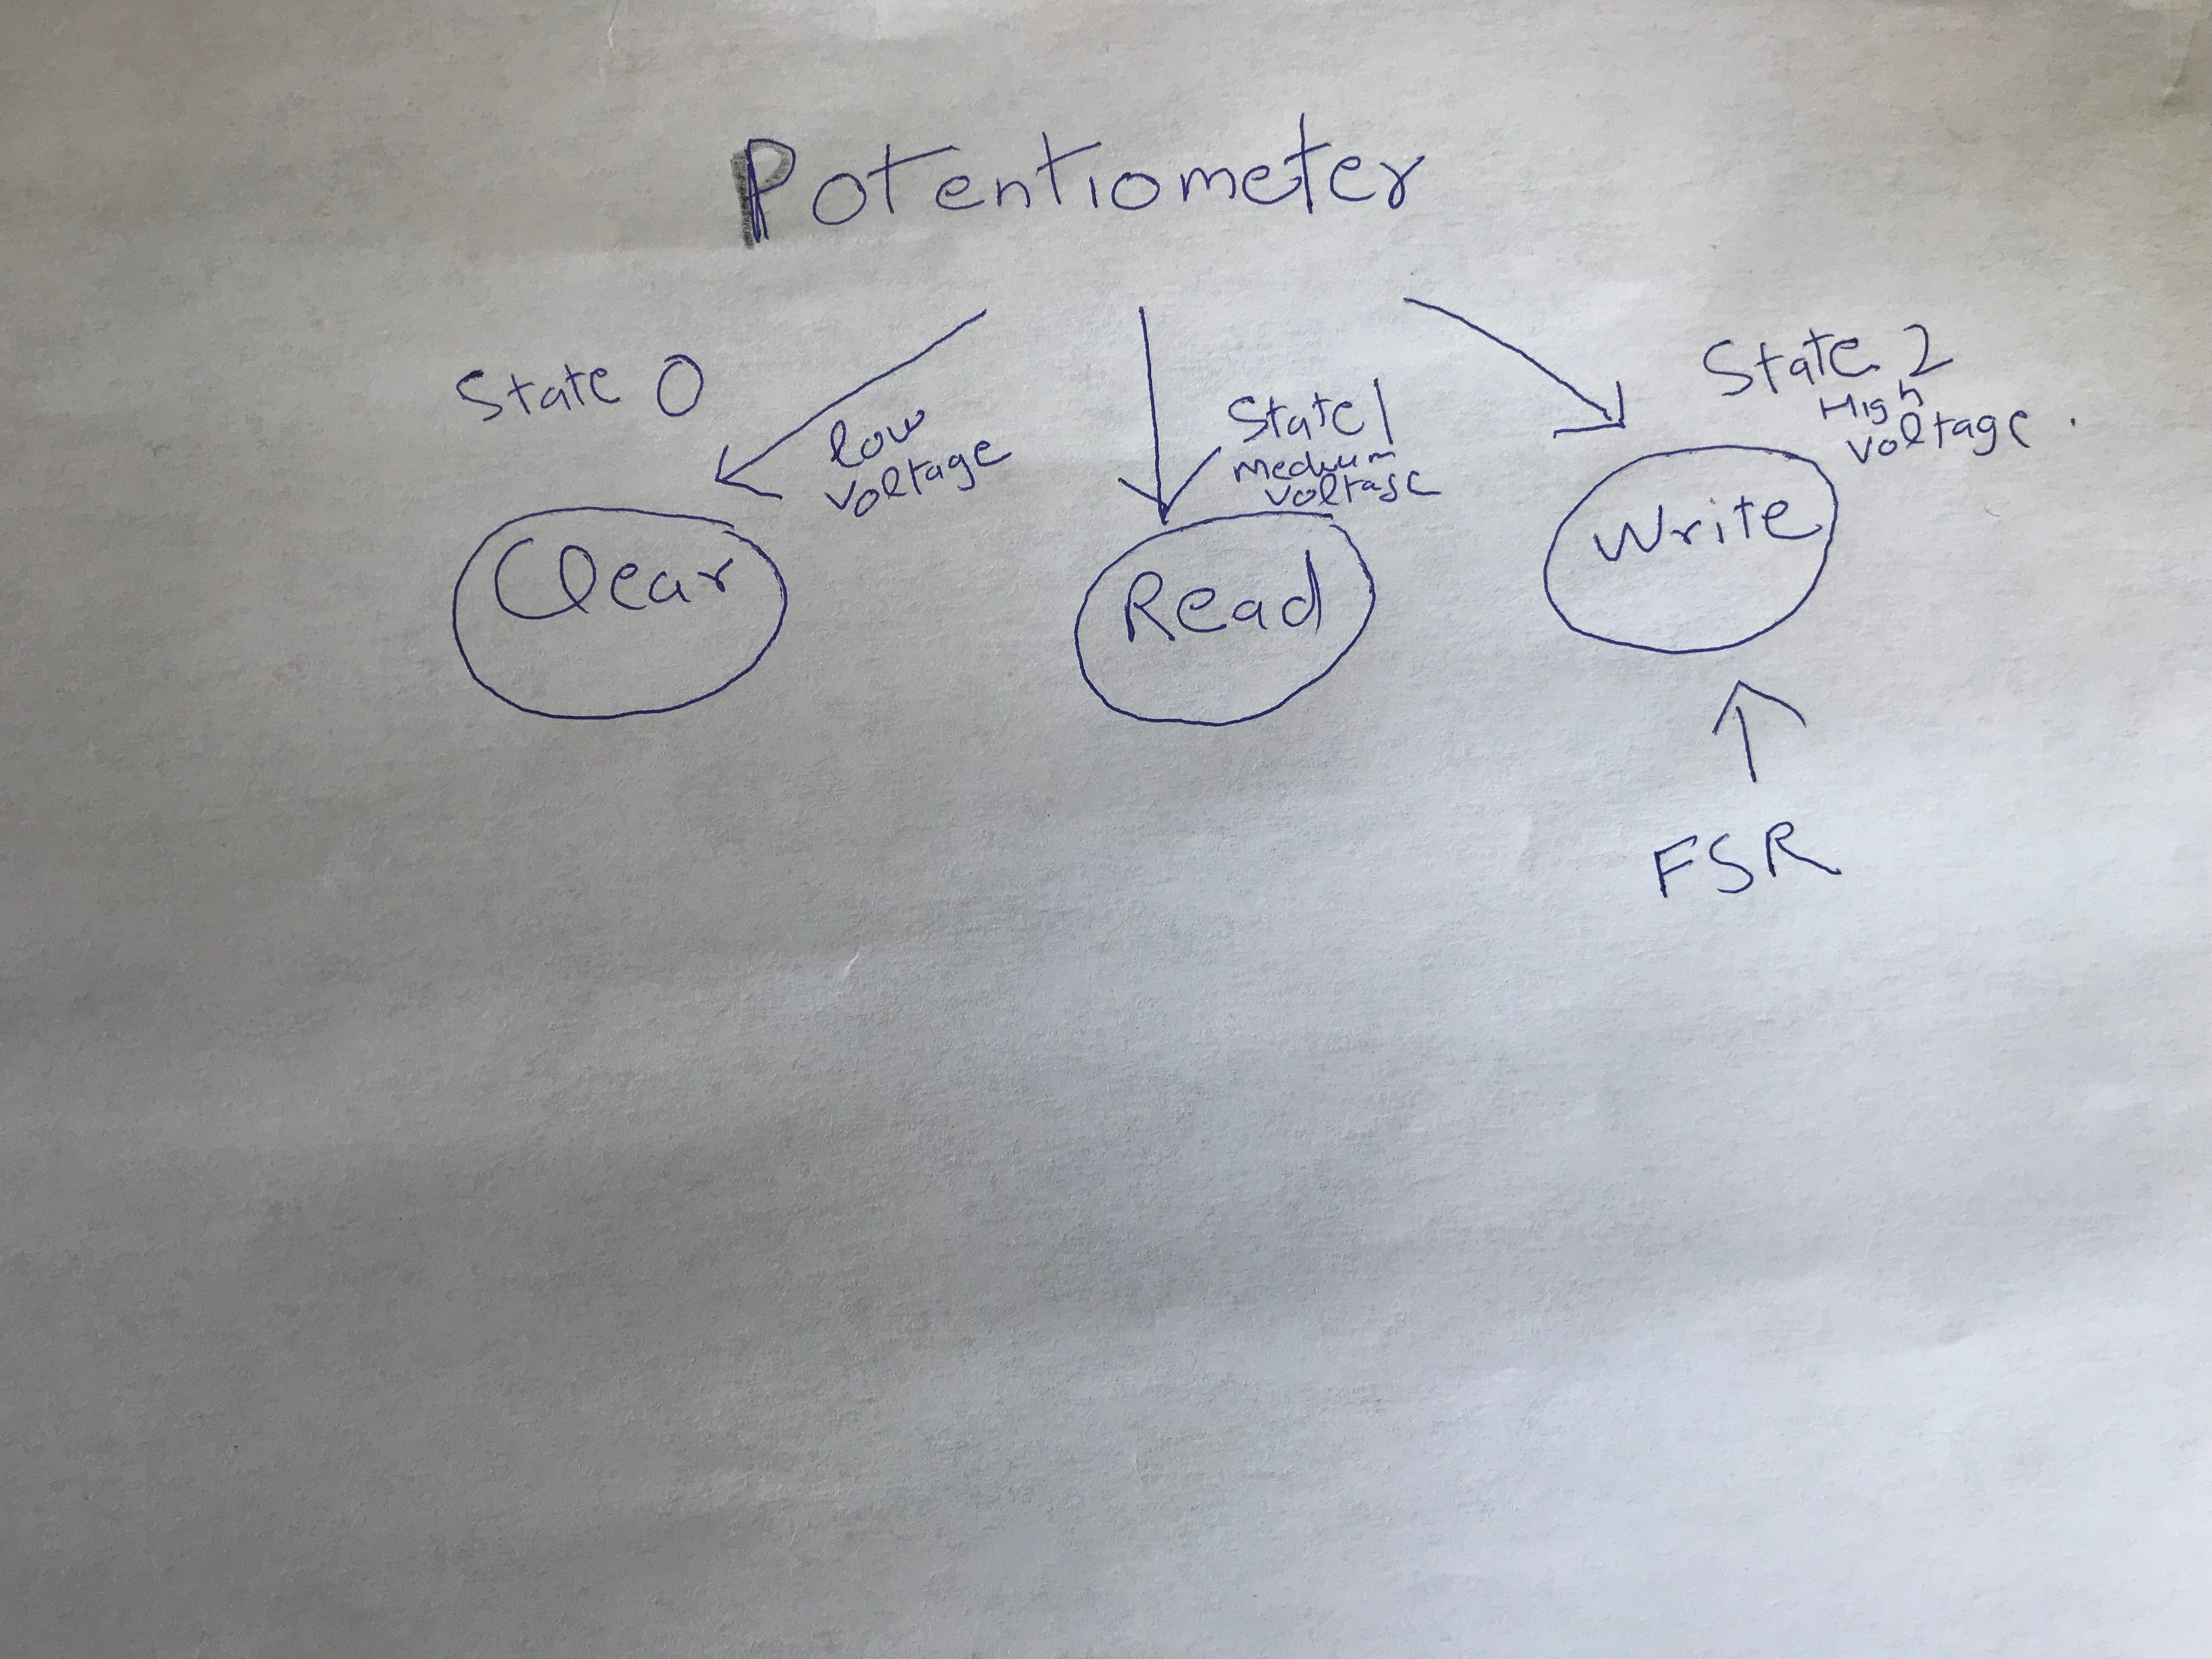 Potentiometer
State 0
low
voltage
Clear
State 1
medium
voltage
Read
State 2
High
voltage.
Write
FSR